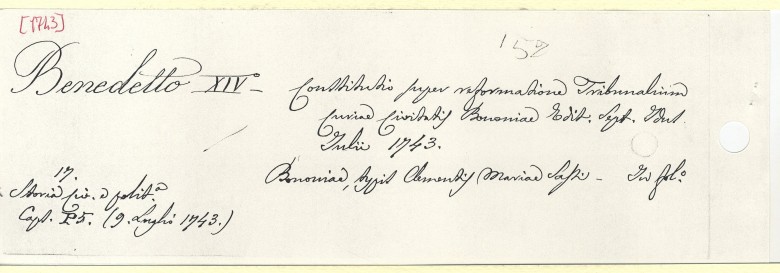 [1743]
152
Benedetto XIV°-
Constitutio super reformatione Tribunalium
Curiae Civitatis Bononiae Edit. Sept. Idus
Iulii 1743.
Bononiae, typis Clementis Mariae Sassi - In fol.°
17.
Storia civ. e polit.ª
Cart. F5. (9. Luglio 1743.)